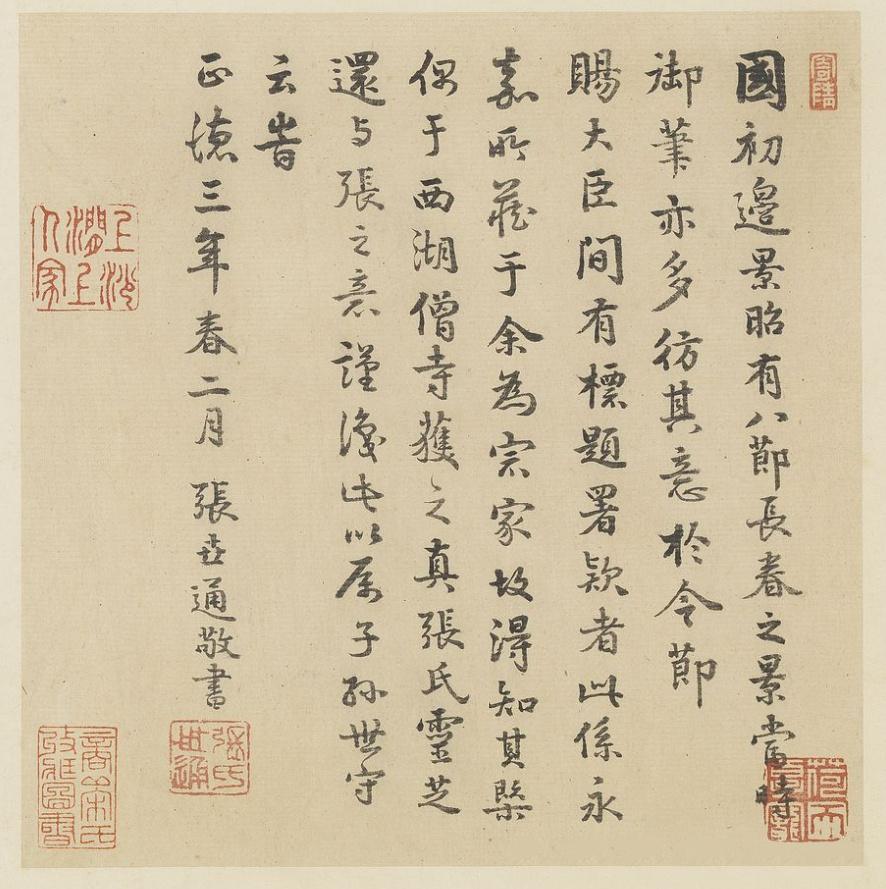 國初邊景昭有八節長春之景當時
御筆亦多彷其意於令節
賜大臣間有標題署款者此係永
嘉所藏于余為宗家故得知其槩
偶于西湖僧寺獲之真張氏靈芝
還与張之意謹此以属子孫世守
云旹
正德三年春二月 張世通敬書
張氏世通